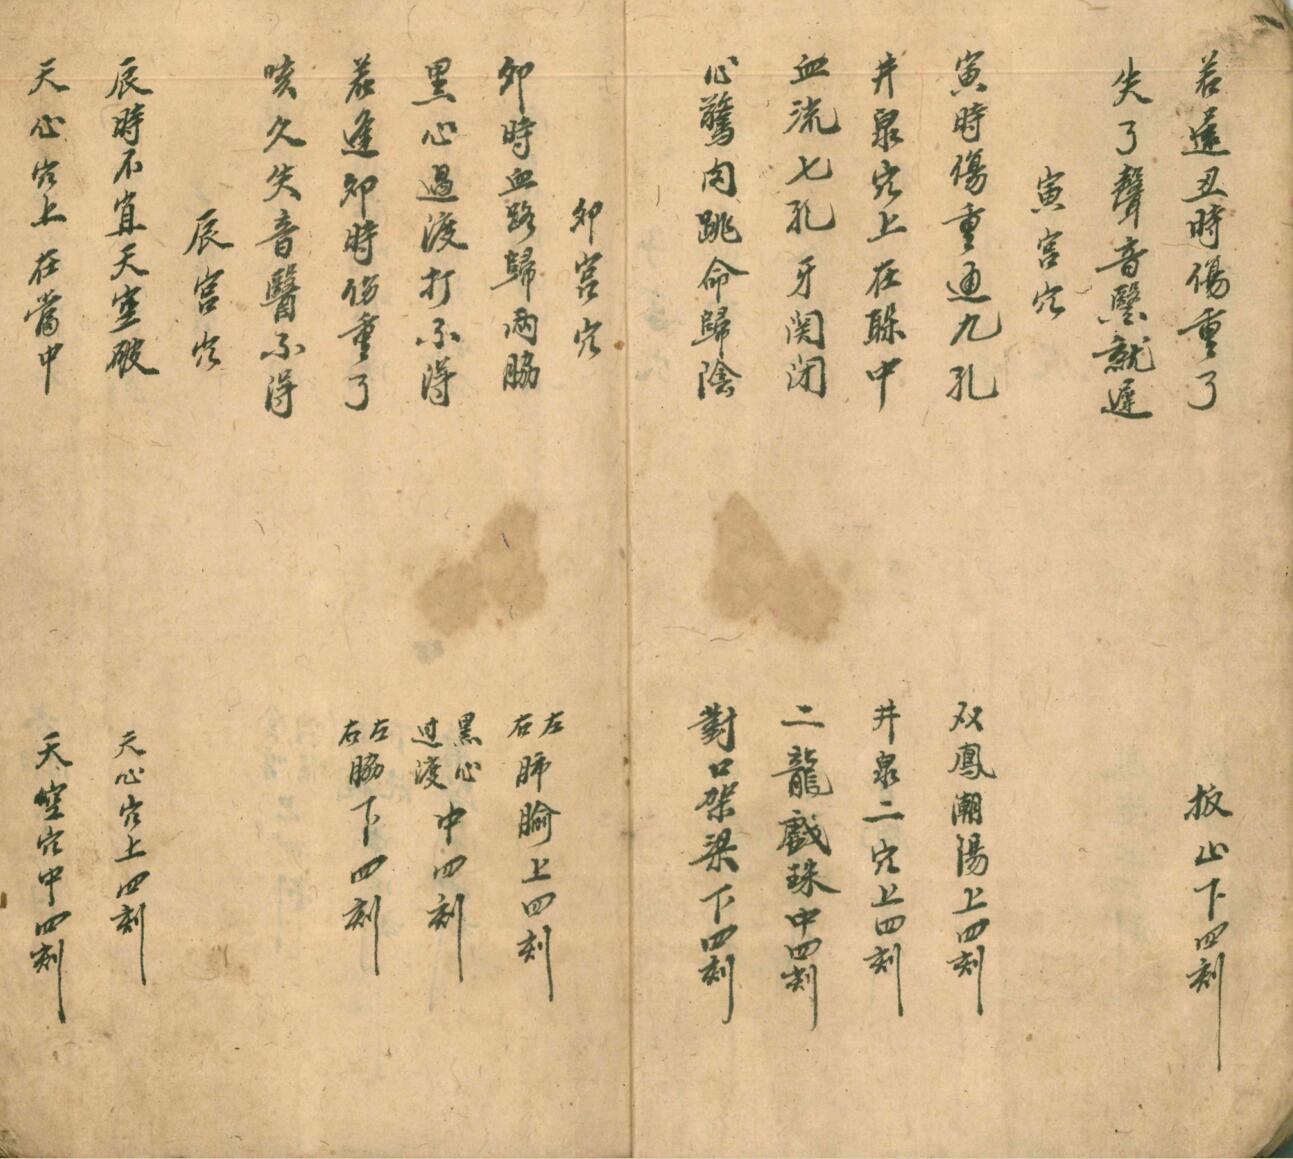 若逢丑時傷重了
扳山下四刻
失了聲音醫就遲
寅宮穴
寅時傷重通九孔
双鳳潮陽上四刻
井泉穴上在縣中
井泉二穴上四刻
血流七孔牙関闭
二龍戲珠中四刻
心驚肉跳命歸陰
對口架梁下四刻
卯宮穴
卯時血路歸兩脇
左右肺腧上四刻
黑心過渡打不得
黑心过渡中四刻
若逢卯時傷重了
左右脇下四刻
咳久失音醫不得
辰宮穴
辰時不宜天空破
天心穴上四刻
天心穴上在當中
天空穴中四刻